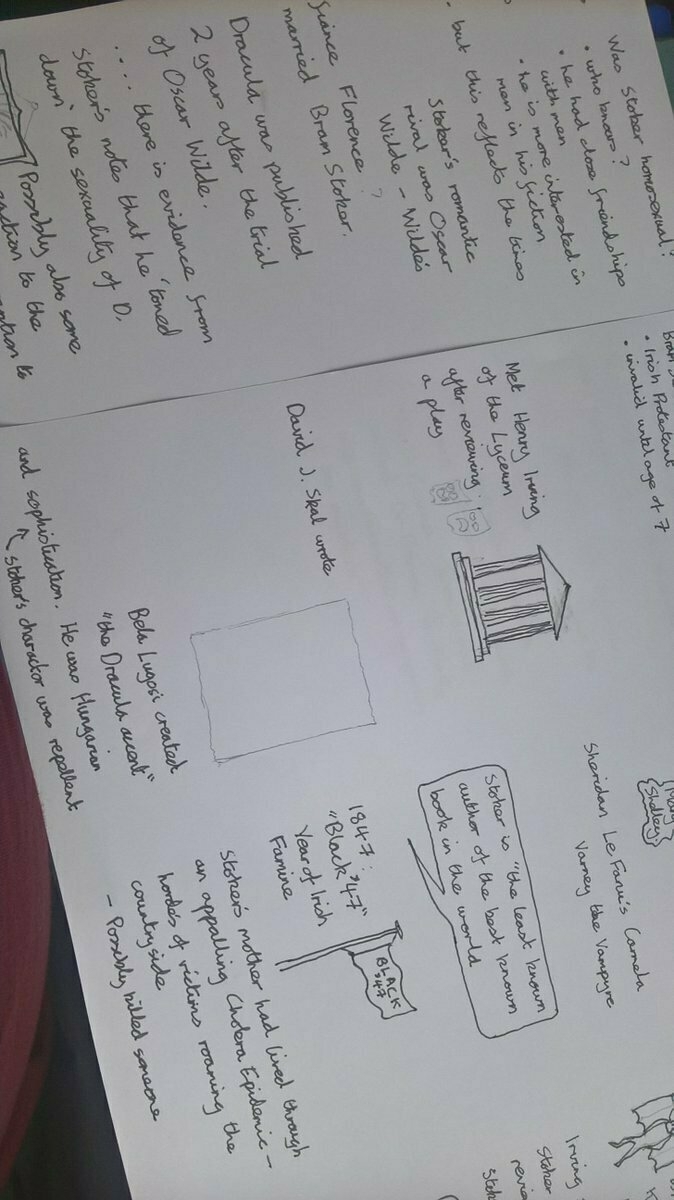 Was Stoker homosexual?
• who knows?
• he had close friendships
with men
• he is more interested in
men in his fiction
- but this reflects the times
Stoker's romantic
rival was Oscar
Wilde - Wilde's
fiance Florence ?
married Bram Stoker.
Dracula was published
2 years after the trial
of Oscar Wilde.
.... there is evidence from
Stoker's notes that he 'toned
down' the sexuality of D.
Possibly also some
reaction to the
• Irish Protestant
• invalid until age of 7
Met Henry Irving
of the Lyceum
after reviewing
a play
David J. Skal wrote
Mary
Shelley
Sheridan Le Fanu's Camela
Varney the Vampyre
Stoker is "the least known
author of the best known
book in the world
1847:
"Black '47"
Year of Irish
Famine
BLACK
'47
Stoker's mother had lived through
an appalling Cholera Epidemic -
hordes of victims roaming the
countryside
- Possibly killed someone
Bela Lugosi created
"the Dracula accent"
and sophistication. He was Hungarian
Stoker's character was repellent
Irving
Stoker